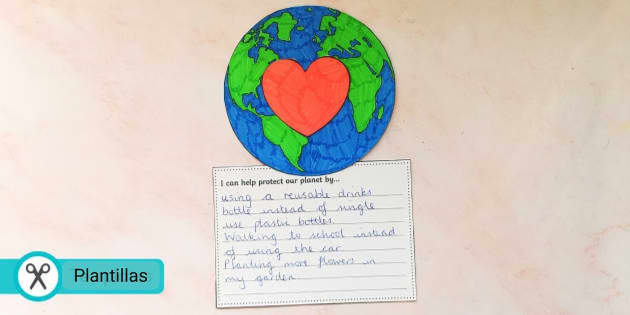 I can help protect our planet by...
using a reusable drinks
bottle instead of single
use plastic bottles.
Walking to school instead
of using the car
Planting more flowers in
my garden
Plantillas